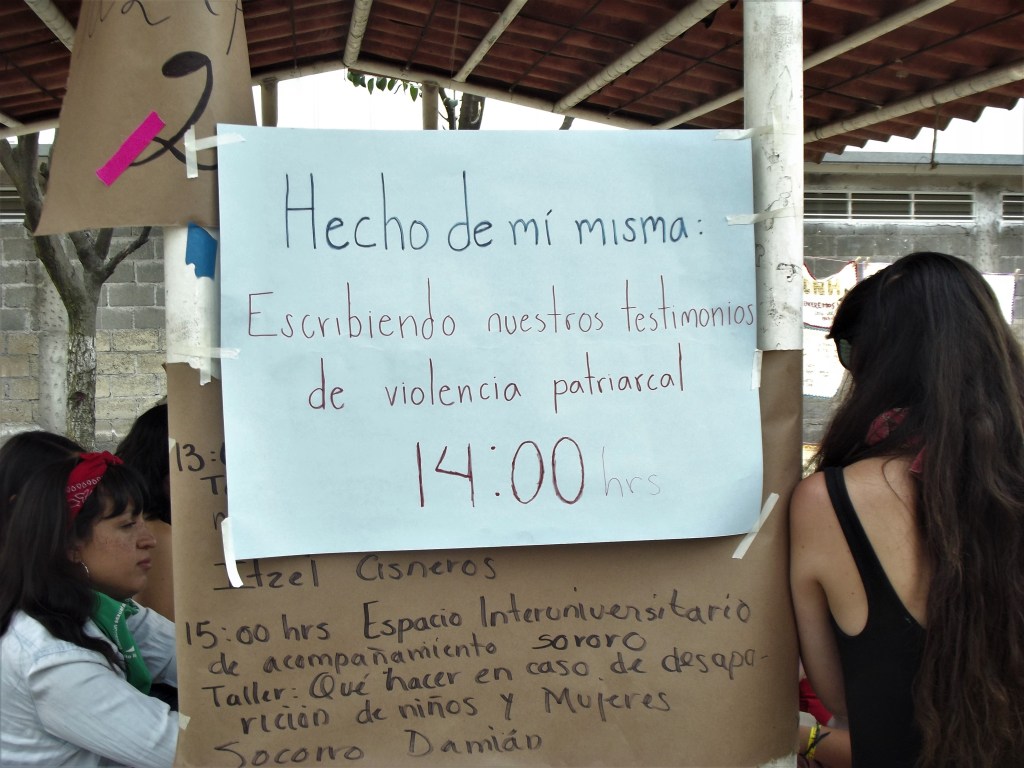 2
Hecho de mí misma:
Escribiendo nuestros testimonios
de violencia patriarcal
14:00 hrs
13:
Itzel Cisneros
15:00 hrs Espacio Interuniversitario
de acompañamiento sororo
Taller: Qué hacer en caso de desapa-
rición de niños y Mujeres
Socorro Damián